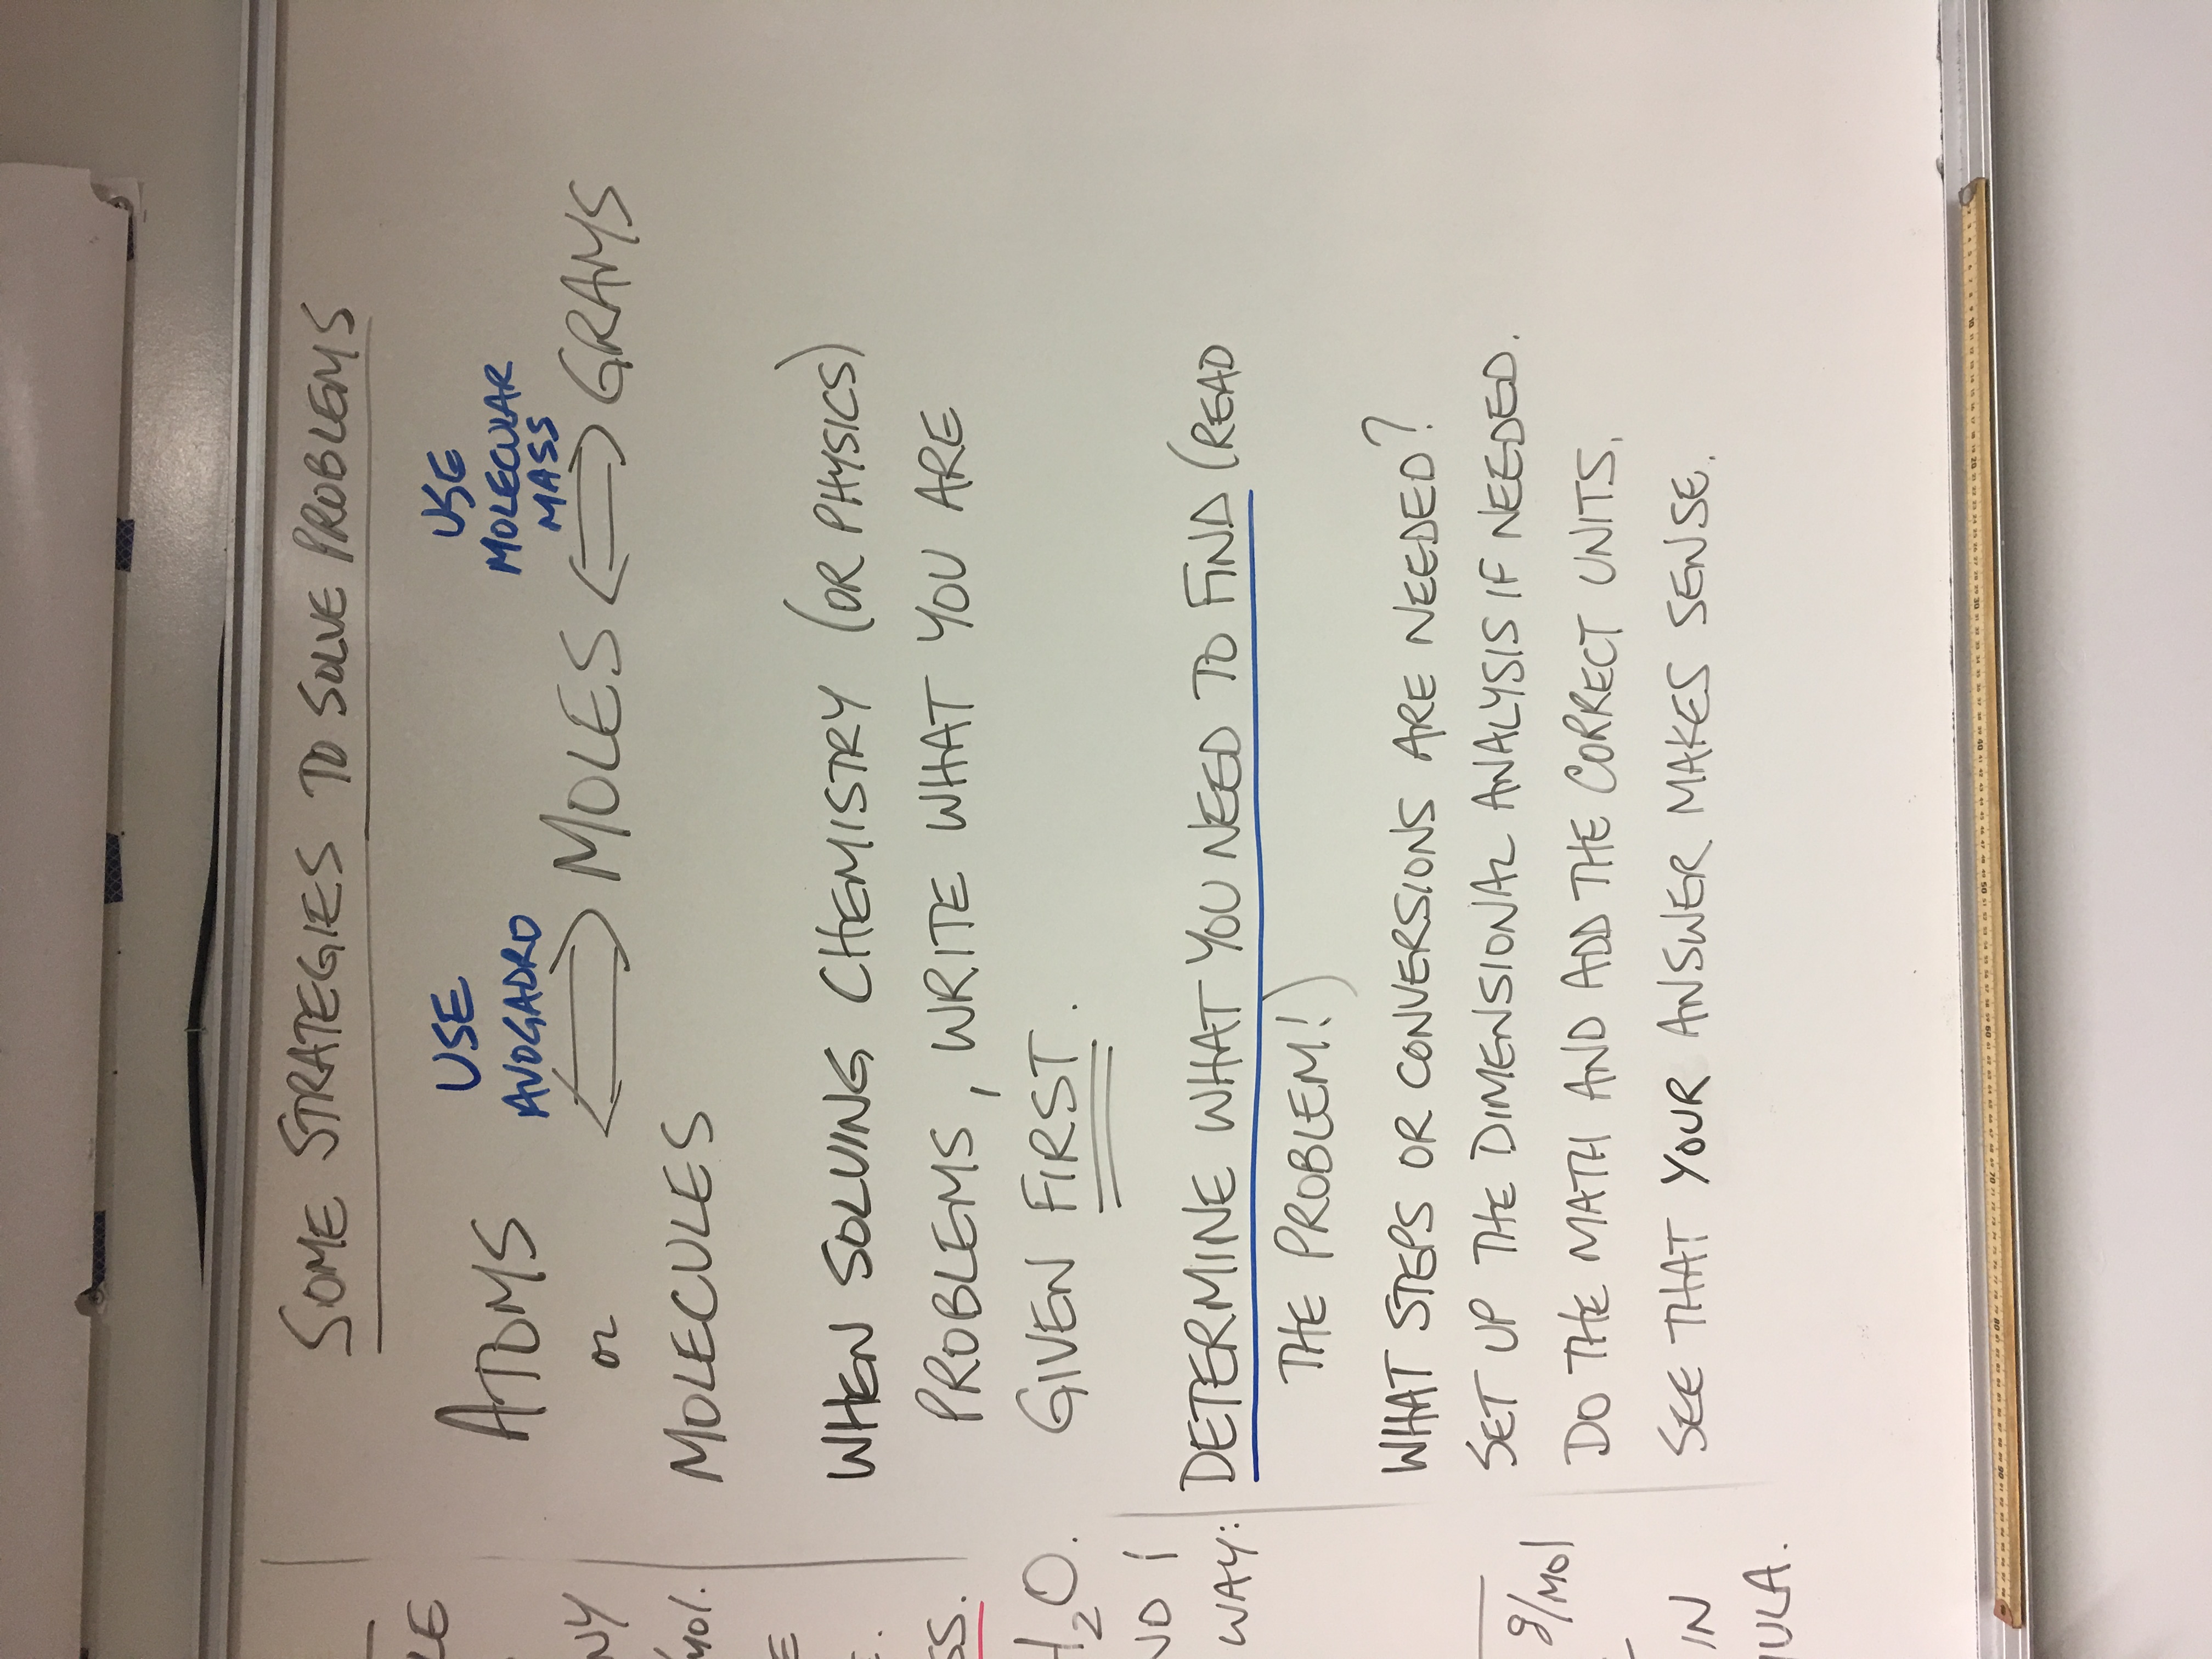 SOME STRATEGIES TO SOLVE PROBLEMS
USE AVOGADRO
USE MOLECULAR MASS
ATOMS or MOLECULES <=> MOLES <=> GRAMS
WHEN SOLVING CHEMISTRY (OR PHYSICS)
PROBLEMS, WRITE WHAT YOU ARE
GIVEN FIRST.
DETERMINE WHAT YOU NEED TO FIND (READ
THE PROBLEM!)
WHAT STEPS OR CONVERSIONS ARE NEEDED?
SET UP THE DIMENSIONAL ANALYSIS IF NEEDED.
DO THE MATH AND ADD THE CORRECT UNITS.
SEE THAT YOUR ANSWER MAKES SENSE.
H2O.
WAY:
g/mol
IN